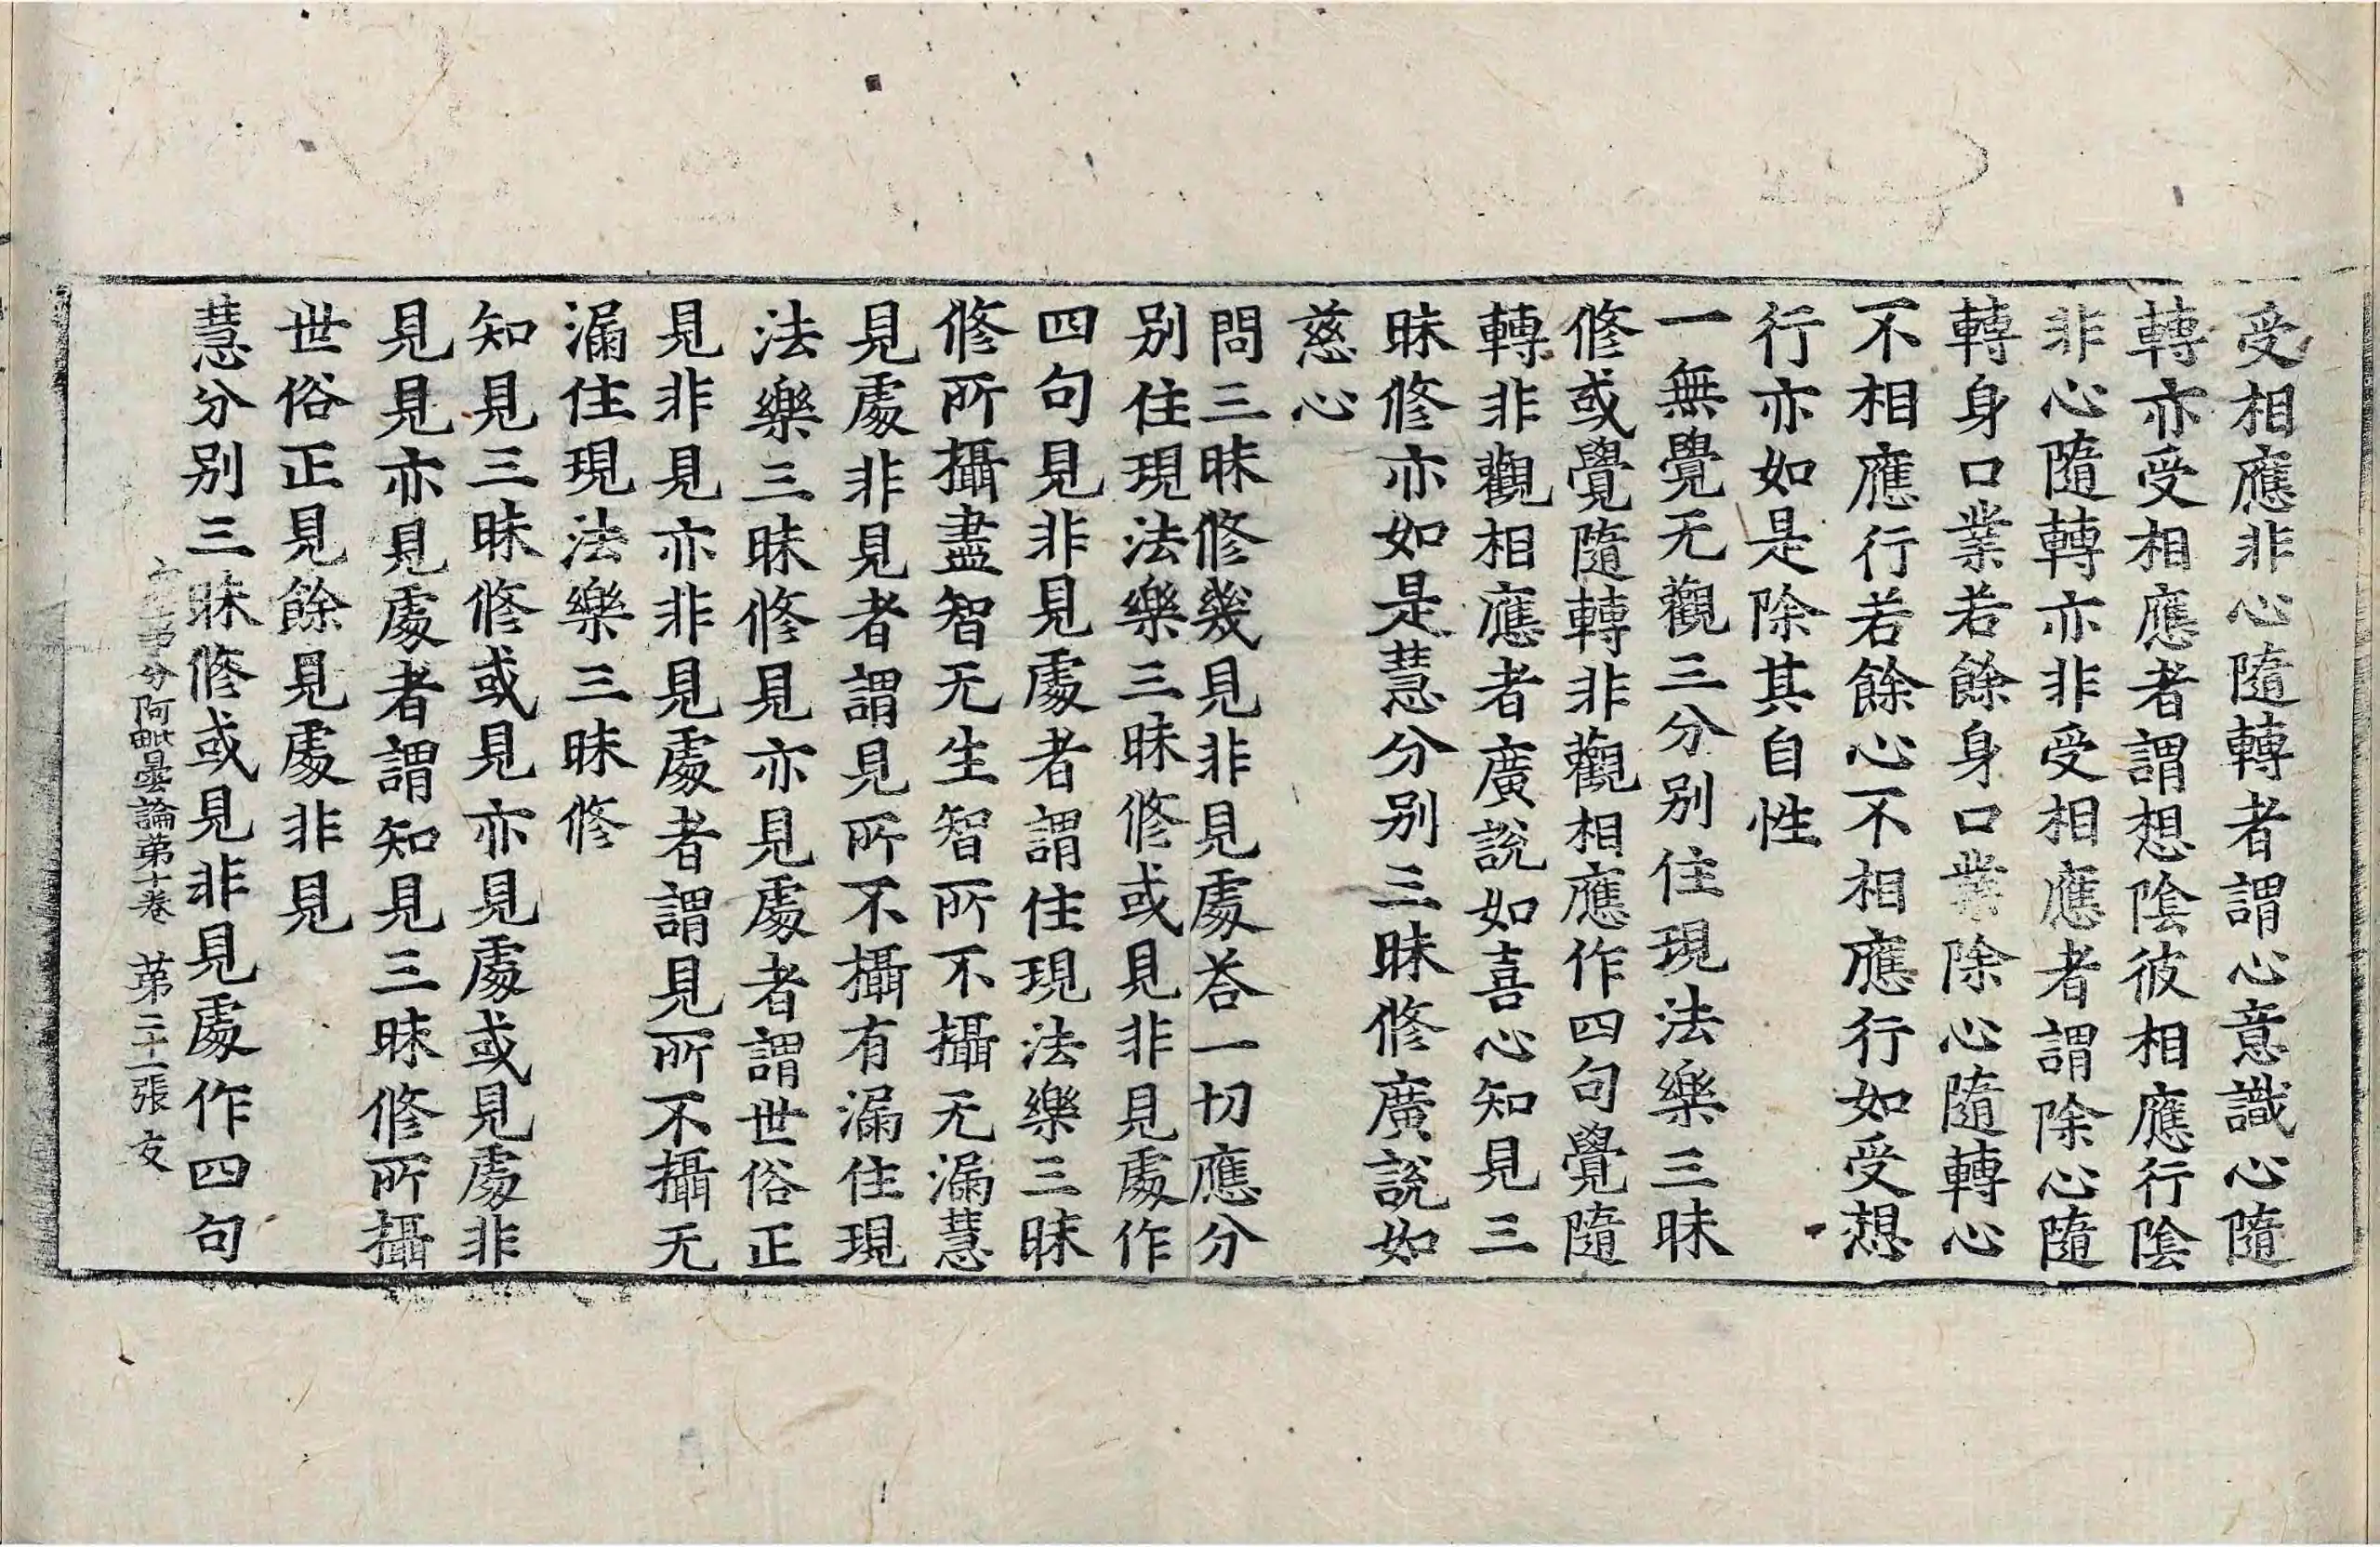 受相應非心隨轉者謂心意識心隨
轉亦受相應者謂想陰彼相應行陰
非心隨轉亦非受相應者謂除心隨
轉身口業若餘身口業除心隨轉心
不相應行若餘心不相應行如受想
行亦如是除其自性
一無覺无觀三分别住現法樂三昧
修或覺隨轉非觀相應作四句覺隨
轉非觀相應者廣說如喜心知見三
昧修亦如是慧分别三昧修廣說如
慈心
問三昧修幾見非見處荅一切應分
别住現法樂三昧修或見非見處作
四句見非見處者謂住現法樂三昧
修所攝盡智无生智所不攝无漏慧
見處非見者謂見所不攝有漏住現
法樂三昧修見亦見處者謂世俗正
見非見亦非見處者謂見所不攝无
漏住現法樂三昧修
知見三昧修或見亦見處或見處非
見見亦見處者謂知見三昧修所攝
世俗正見餘見處非見
慧分别三昧修或見非見處作四句
分阿毗曇論第十卷 第二十一張 友